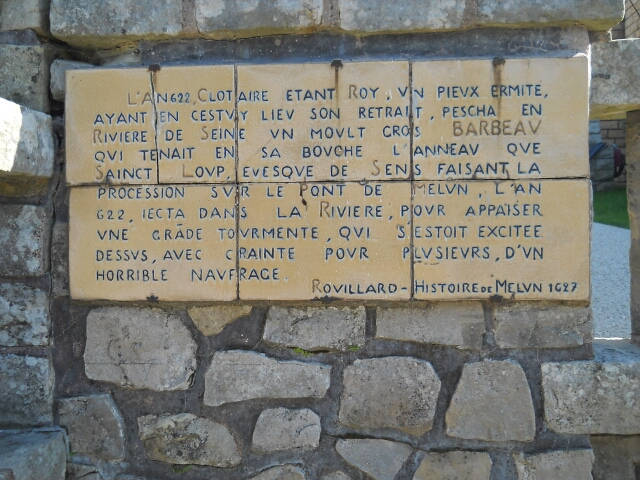 L'AN 622, CLOTAIRE ETANT ROY, VN PIEVX ERMITE,
AYANT EN CESTVY LIEV SON RETRAIT, PESCHA EN
RIVIERE DE SEINE VN MOVLT GROS BARBEAV
QUI TENAIT EN SA BOUCHE L'ANNEAV QUE
SAINCT LOVP, EVESQVE DE SENS FAISANT LA
PROCESSION SVR LE PONT DE MELVN, L'AN
622, IECTA DANS LA RIVIERE, POVR APPAISER
VNE GRÃDE TOVRMENTE, QVI S'ESTOIT EXCITEE
DESSVS, AVEC CRAINTE POVR PLVSIEVRS, D'VN
HORRIBLE NAVFRAGE.
ROVILLARD - HISTOIRE DE MELVN 1627